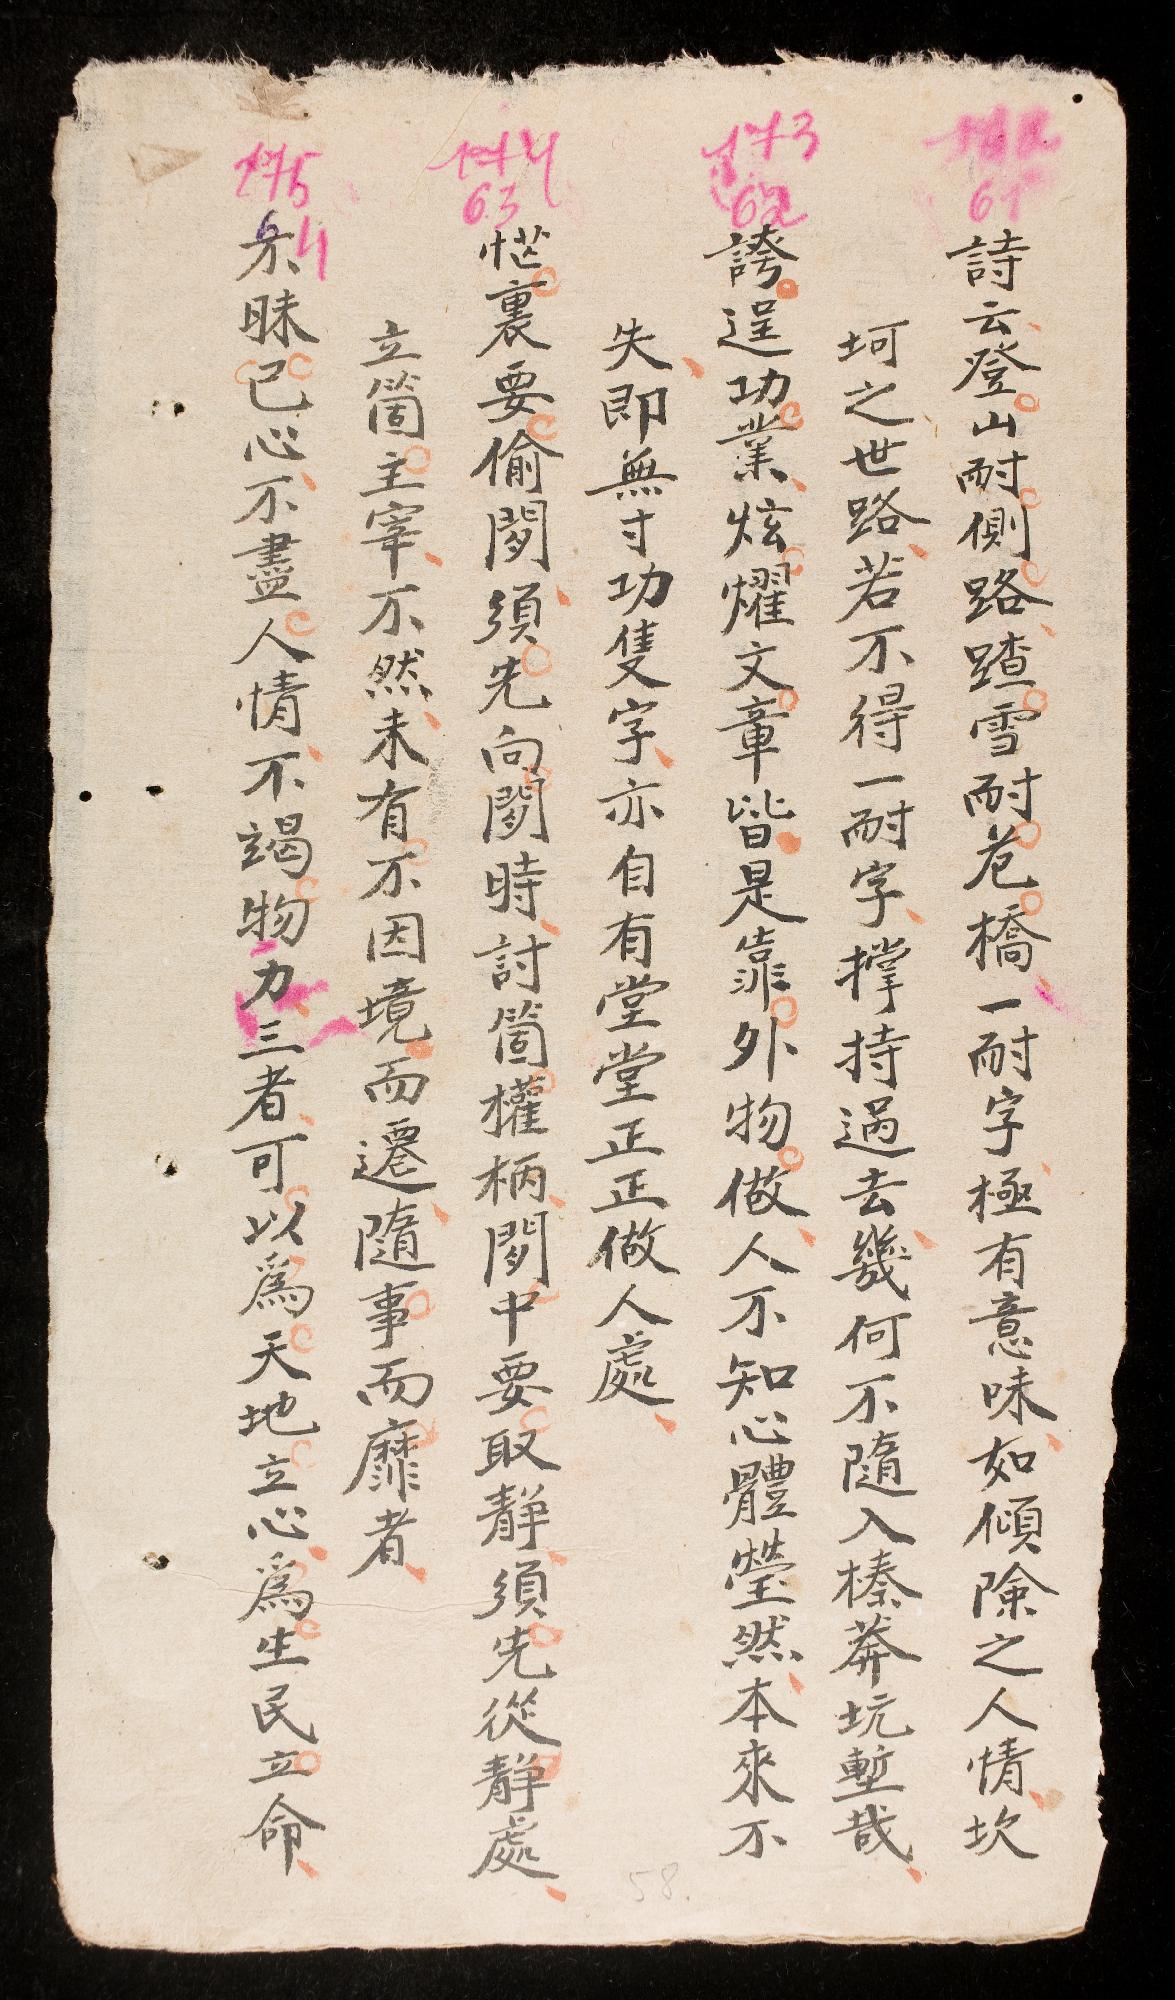 172
61
詩云登山耐側路蹅雪耐危橋一耐字極有意味如傾險之人情坎
坷之世路若不得一耐字撑持過去幾何不隨入榛莽坑塹哉
173
62
誇逞功業炫燿文章皆是靠外物做人不知心體瑩然本來不
失即無寸功隻字亦自有堂堂正正做人處
174
63
忙裏要偷閒須先向閒時討箇權柄閒中要取靜須先從靜處
立箇主宰不然未有不因境而遷隨事而靡者
175
64
不昧己心不盡人情不竭物力三者可以爲天地立心爲生民立命
58.